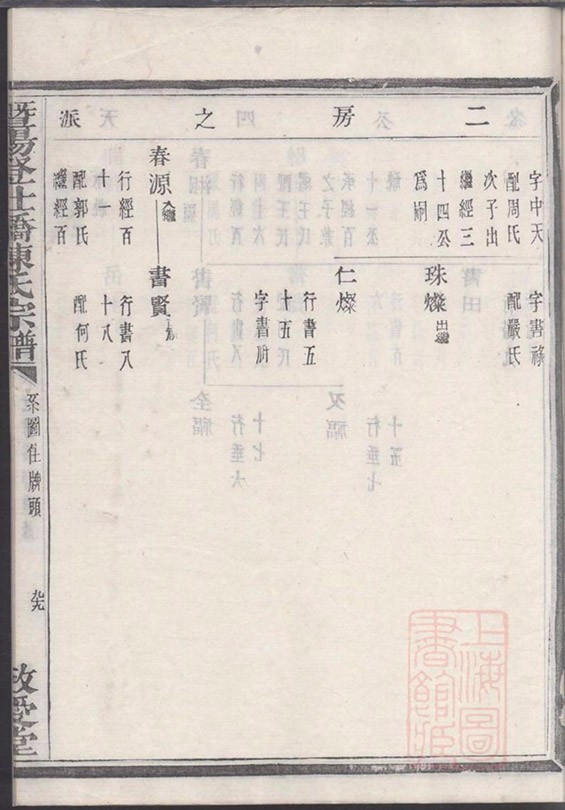 二房之派
字中天
配周氏
次子出
繼經三
十四公
為嗣
字書祿
配嚴氏
珠燦出繼
仁燦
行書五
十五氏
字書
春源入繼
書賢
行經百
十一
配郭氏
繼經百
行書八
十八
配何氏
暨陽
橋陳氏宗譜
系圖住牌頭
敬愛堂
上海圖書館藏